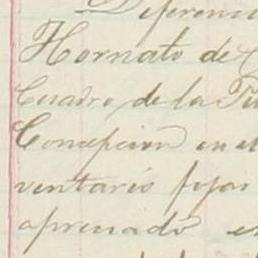 Diferenci
Hornato de
Cuadro de la Pu
Concepcion en el
ventario fojas
apreciado e